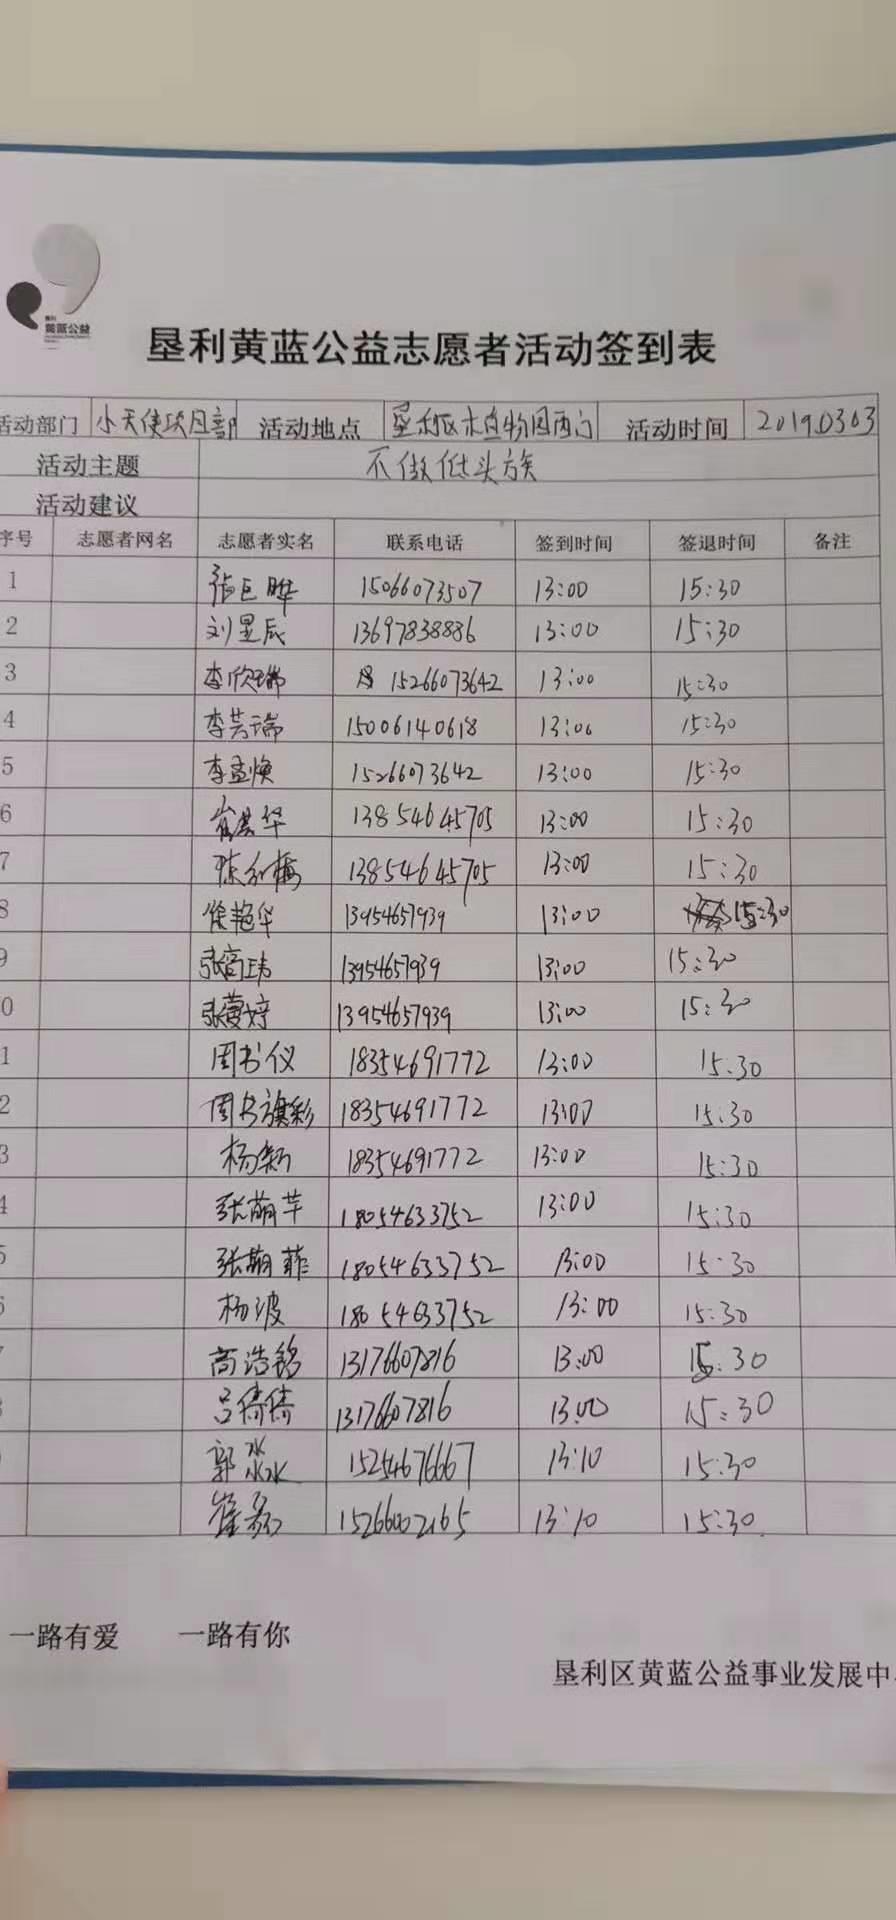 垦利
黄蓝公益
垦利黄蓝公益志愿者活动签到表
活动部门 小天使项目部 活动地点 垦利区木植物园西门 活动时间 20190303
活动主题 不做低头族
活动建议
序号 志愿者网名 志愿者实名 联系电话 签到时间 签退时间 备注
1 张巨晔 15066073507 13:00 15:30
2 刘昱辰 13697838886 13:00 15:30
3 李欣瑞 15266073642 13:00 15:30
4 李芸瑞 15006140618 13:00 15:30
5 李孟焕 15266073642 13:00 15:30
6 崔芸华 13854645705 13:00 15:30
7 陈红梅 13854645705 13:00 15:30
8 徐艳华 13954657939 13:00 15:30
9 张高玮 13954657939 13:00 15:30
0 张蔓婷 13954657939 13:00 15:30
1 周书仪 18354691772 13:00 15:30
2 周书旗彩 18354691772 13:00 15:30
3 杨颖 18354691772 13:00 15:30
4 张萌芊 18054633752 13:00 15:30
5 张萌菲 18054633752 13:00 15:30
6 杨波 18054633752 13:00 15:30
7 高浩铭 13176607816 13:00 15:30
8 吕倩倩 13176607816 13:00 15:30
郭淼 15254676667 13:10 15:30
崔磊 15266002165 13:10 15:30
一路有爱 一路有你
垦利区黄蓝公益事业发展中